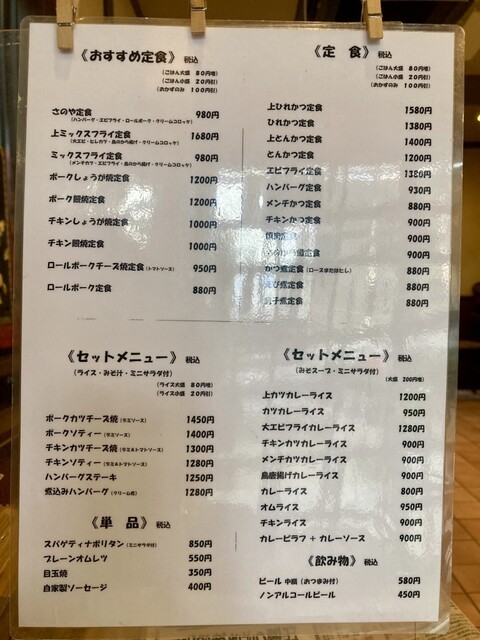 《おすすめ定食》 税込
(ごはん大盛 80円増)
(ごはん小盛 20円引)
(おかずのみ 100円引)
さのや定食 980円
(ハンバーグ・エビフライ・ロールポーク・クリームコロッケ)
上ミックスフライ定食 1680円
(大エビ・ヒレカツ・鳥のから揚げ・クリームコロッケ)
ミックスフライ定食 980円
(メンチカツ・エビフライ・鳥のから揚げ・クリームコロッケ)
ポークしょうが焼定食 1200円
ポーク饅焼定食 1200円
チキンしょうが焼定食 1000円
チキン饅焼定食 1000円
ロールポークチーズ焼定食(トマトソース) 950円
ロールポーク定食 880円
《定 食》 税込
(ごはん大盛 80円増)
(ごはん小盛 20円引)
(おかずのみ 100円引)
上ひれかつ定食 1580円
ひれかつ定食 1380円
上とんかつ定食 1400円
とんかつ定食 1200円
エビフライ定食 1380円
ハンバーグ定食 930円
メンチかつ定食 880円
チキンかつ定食 900円
定食 900円
定食 900円
かつ煮定食(ロースまたはヒレ) 880円
煮定食 880円
子煮定食 880円
《セットメニュー》 税込
(ライス・みそ汁・ミニサラダ付)
(ライス大盛 80円増)
(ライス小盛 20円引)
ポークカツチーズ焼(デミソース) 1450円
ポークソティー(デミソース) 1400円
チキンカツチーズ焼(デミ&トマトソース) 1300円
チキンソティー(デミ&トマトソース) 1280円
ハンバーグステーキ 1250円
煮込みハンバーグ(クリーム煮) 1280円
《単 品》 税込
スパゲティナポリタン(ミニサラダ付) 850円
プレーンオムレツ 550円
目玉焼 350円
自家製ソーセージ 400円
《セットメニュー》 税込
(みそスープ・ミニサラダ付)
(大盛 200円増)
上カツカレーライス 1200円
カツカレーライス 950円
大エビフライカレーライス 1280円
チキンカツカレーライス 900円
メンチカツカレーライス 900円
鳥唐揚げカレーライス 900円
カレーライス 800円
オムライス 950円
チキンライス 900円
カレーピラフ + カレーソース 900円
《飲み物》 税込
ビール 中瓶(おつまみ付) 580円
ノンアルコールビール 450円